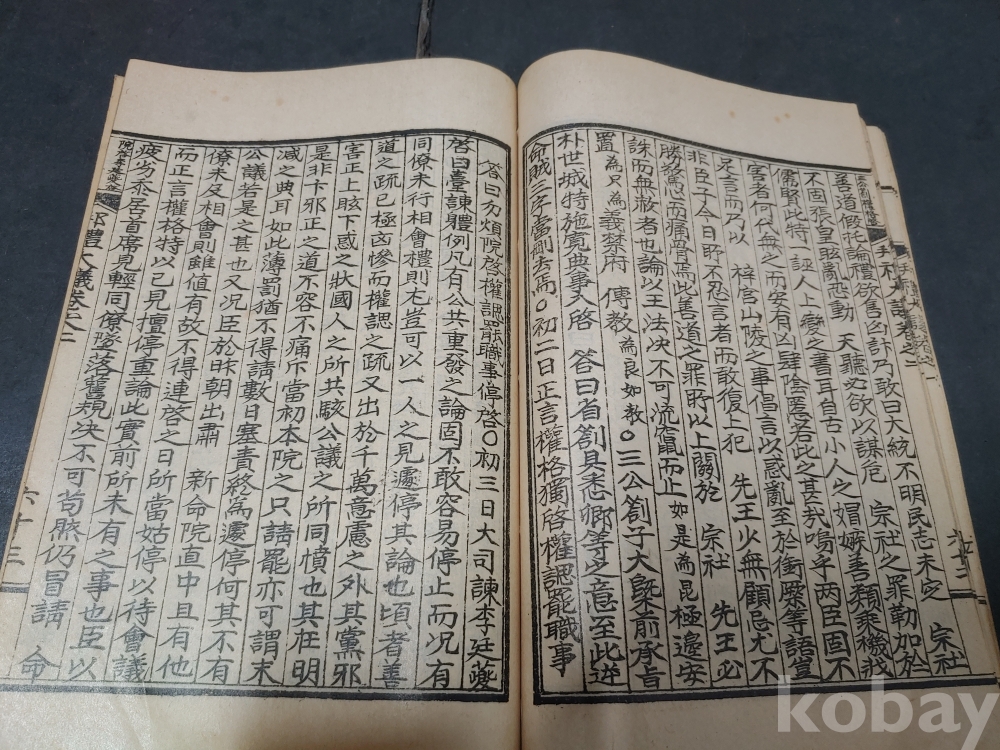 善道假托論禮欲售凶計乃敢曰大統不明民志未定 宗社
不固張皇眩亂恐動 天聽必欲以謀危 宗社之罪勒加於
儒賢此特一誣人上變之書耳自古小人之媢嫉善類乘機戕
害者何代無之而安有凶肆陰慝若此之甚哉嗚乎兩臣固不
足言而乃以 梓宮山陵之事倡言以惑亂至於衝屢等語豈
非臣子今日所不忍言者而敢復上犯 先王少無顧忌尤不
勝驚心而痛骨焉此善道之罪所以上關於 宗社 先王必
誅而無赦者也論以王法決不可流竄而止 如是為昆極邊安
置為只為義禁府 傳敎為良如敎〇三公箚子大槩前承旨
朴世城特施寬典事入啓 答曰省箚具悉卿等之意至此逆
命賊三字當刪去焉〇初二日正言權格獨啓權諰罷職事
答曰勿煩院啓權諰罷職事停啓〇初三日大司諫李廷夔
啓曰臺諫體例凡有公共重發之論固不敢容易停止而况有
同僚未行相會禮則尤豈可以一人之見遽停其論也頃者善
道之疏已極凶慘而權諰之疏又出於千萬意慮之外其黨邪
害正上眩下惑之狀國人之所共駭公議之所同憤也其在明
是非卞邪正之道不容不痛斥當初本院之只請罷亦可謂末
減之典耳如此薄罰猶不得請數日塞責終為遽停何其不有
公議若是之甚也又况臣於昨朝出肅 新命院直中且有他
僚未及相會則雖値有故不得連啓之日所當姑停以待會議
而正言權格特以已見擅停重論此實前所未有之事也臣以
疲劣忝居首席見輕同僚墜落舊規决不可苟然仍冒請 命
邦禮大議卷之二
六十三
kobay